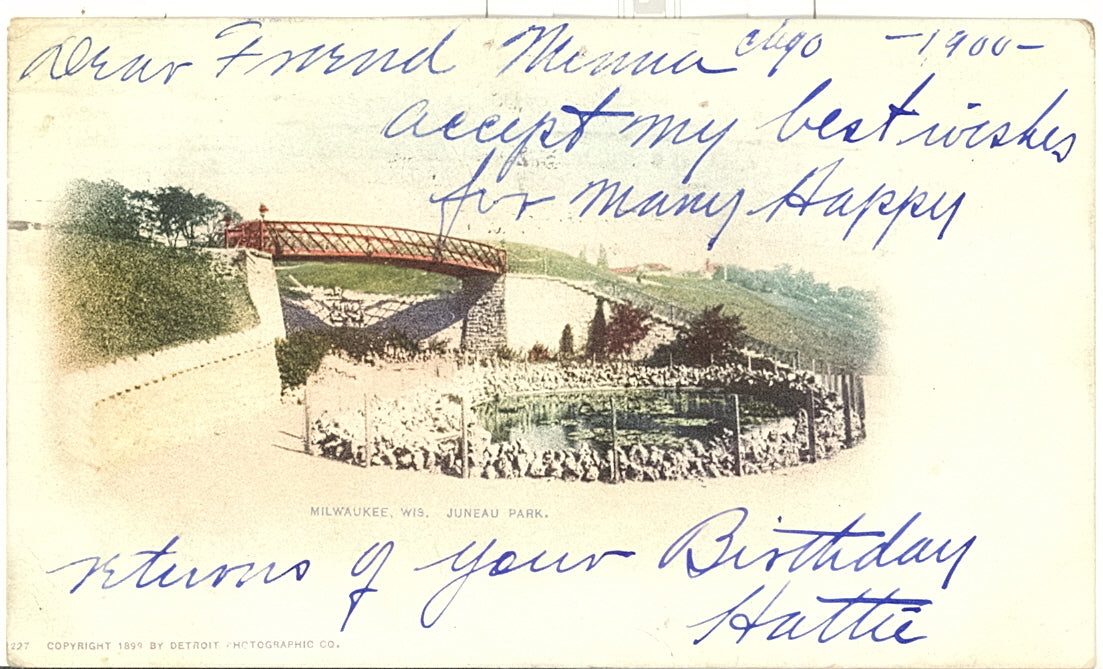 Dear Friend Menna Chgo -1900-
accept my best wishes
for many Happy
MILWAUKEE, WIS. JUNEAU PARK.
returns of your Birthday
Hattie
227 COPYRIGHT 1899 BY DETROIT PHOTOGRAPHIC CO.